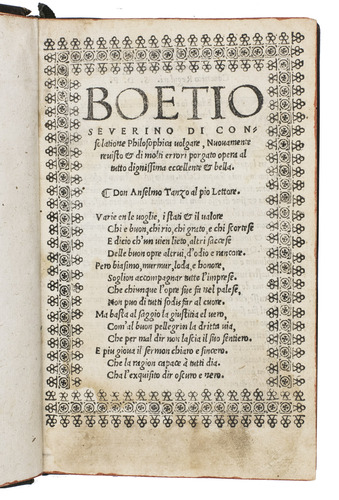 BOETIO
SEVERINO DI CON-
solatione Philosophica volgare, Nuovamente
revisto & di molti errori porgato opera al
tutto dignissima eccellente & bella.
¶ Don Anselmo Tanzo al pio Lettore.
Varie en le voglie, i stati & il valore
Chi e buon, chi rio, chi grato, e chi scortese
E dicio ch'un vien lieto, altri s'accese
Delle buon opre altrui, d'odio e rancore.
Pero biasimo, murmur, loda, e honore,
Soglion accompagnar tutte l'imprese.
Che chiunque l'opre sue fa nel palese,
Non puo di tutti sodisfar al cuore.
Ma basta al saggio la giustitia el vero,
Com'al buon pellegrin la dritta via,
Che per mal dir non lascia il suo sentiero.
E piu giova il sermon chiaro e sincero.
Che la ragion capace à tutti dia.
Cha l'exquisito dir oscuro e nero.